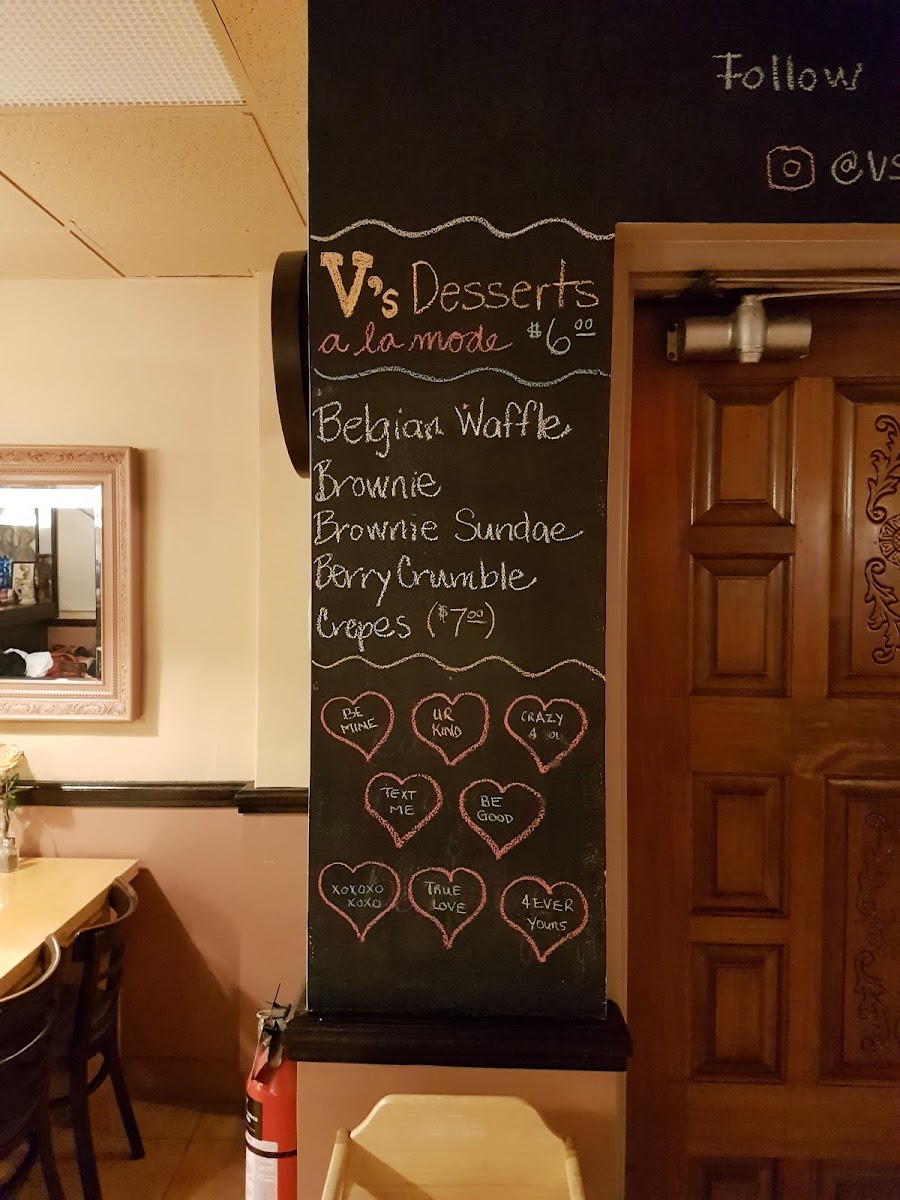 Follow
@VS
V's Desserts
a la mode $6.00
Belgian Waffle
Brownie
Brownie Sundae
Berry Crumble
Crepes ($7.00)
BE
MINE
UR
KIND
CRAZY
4 YOU
TEXT
ME
BE
GOOD
XOXOXO
XOXO
TRUE
LOVE
4EVER
YOURS